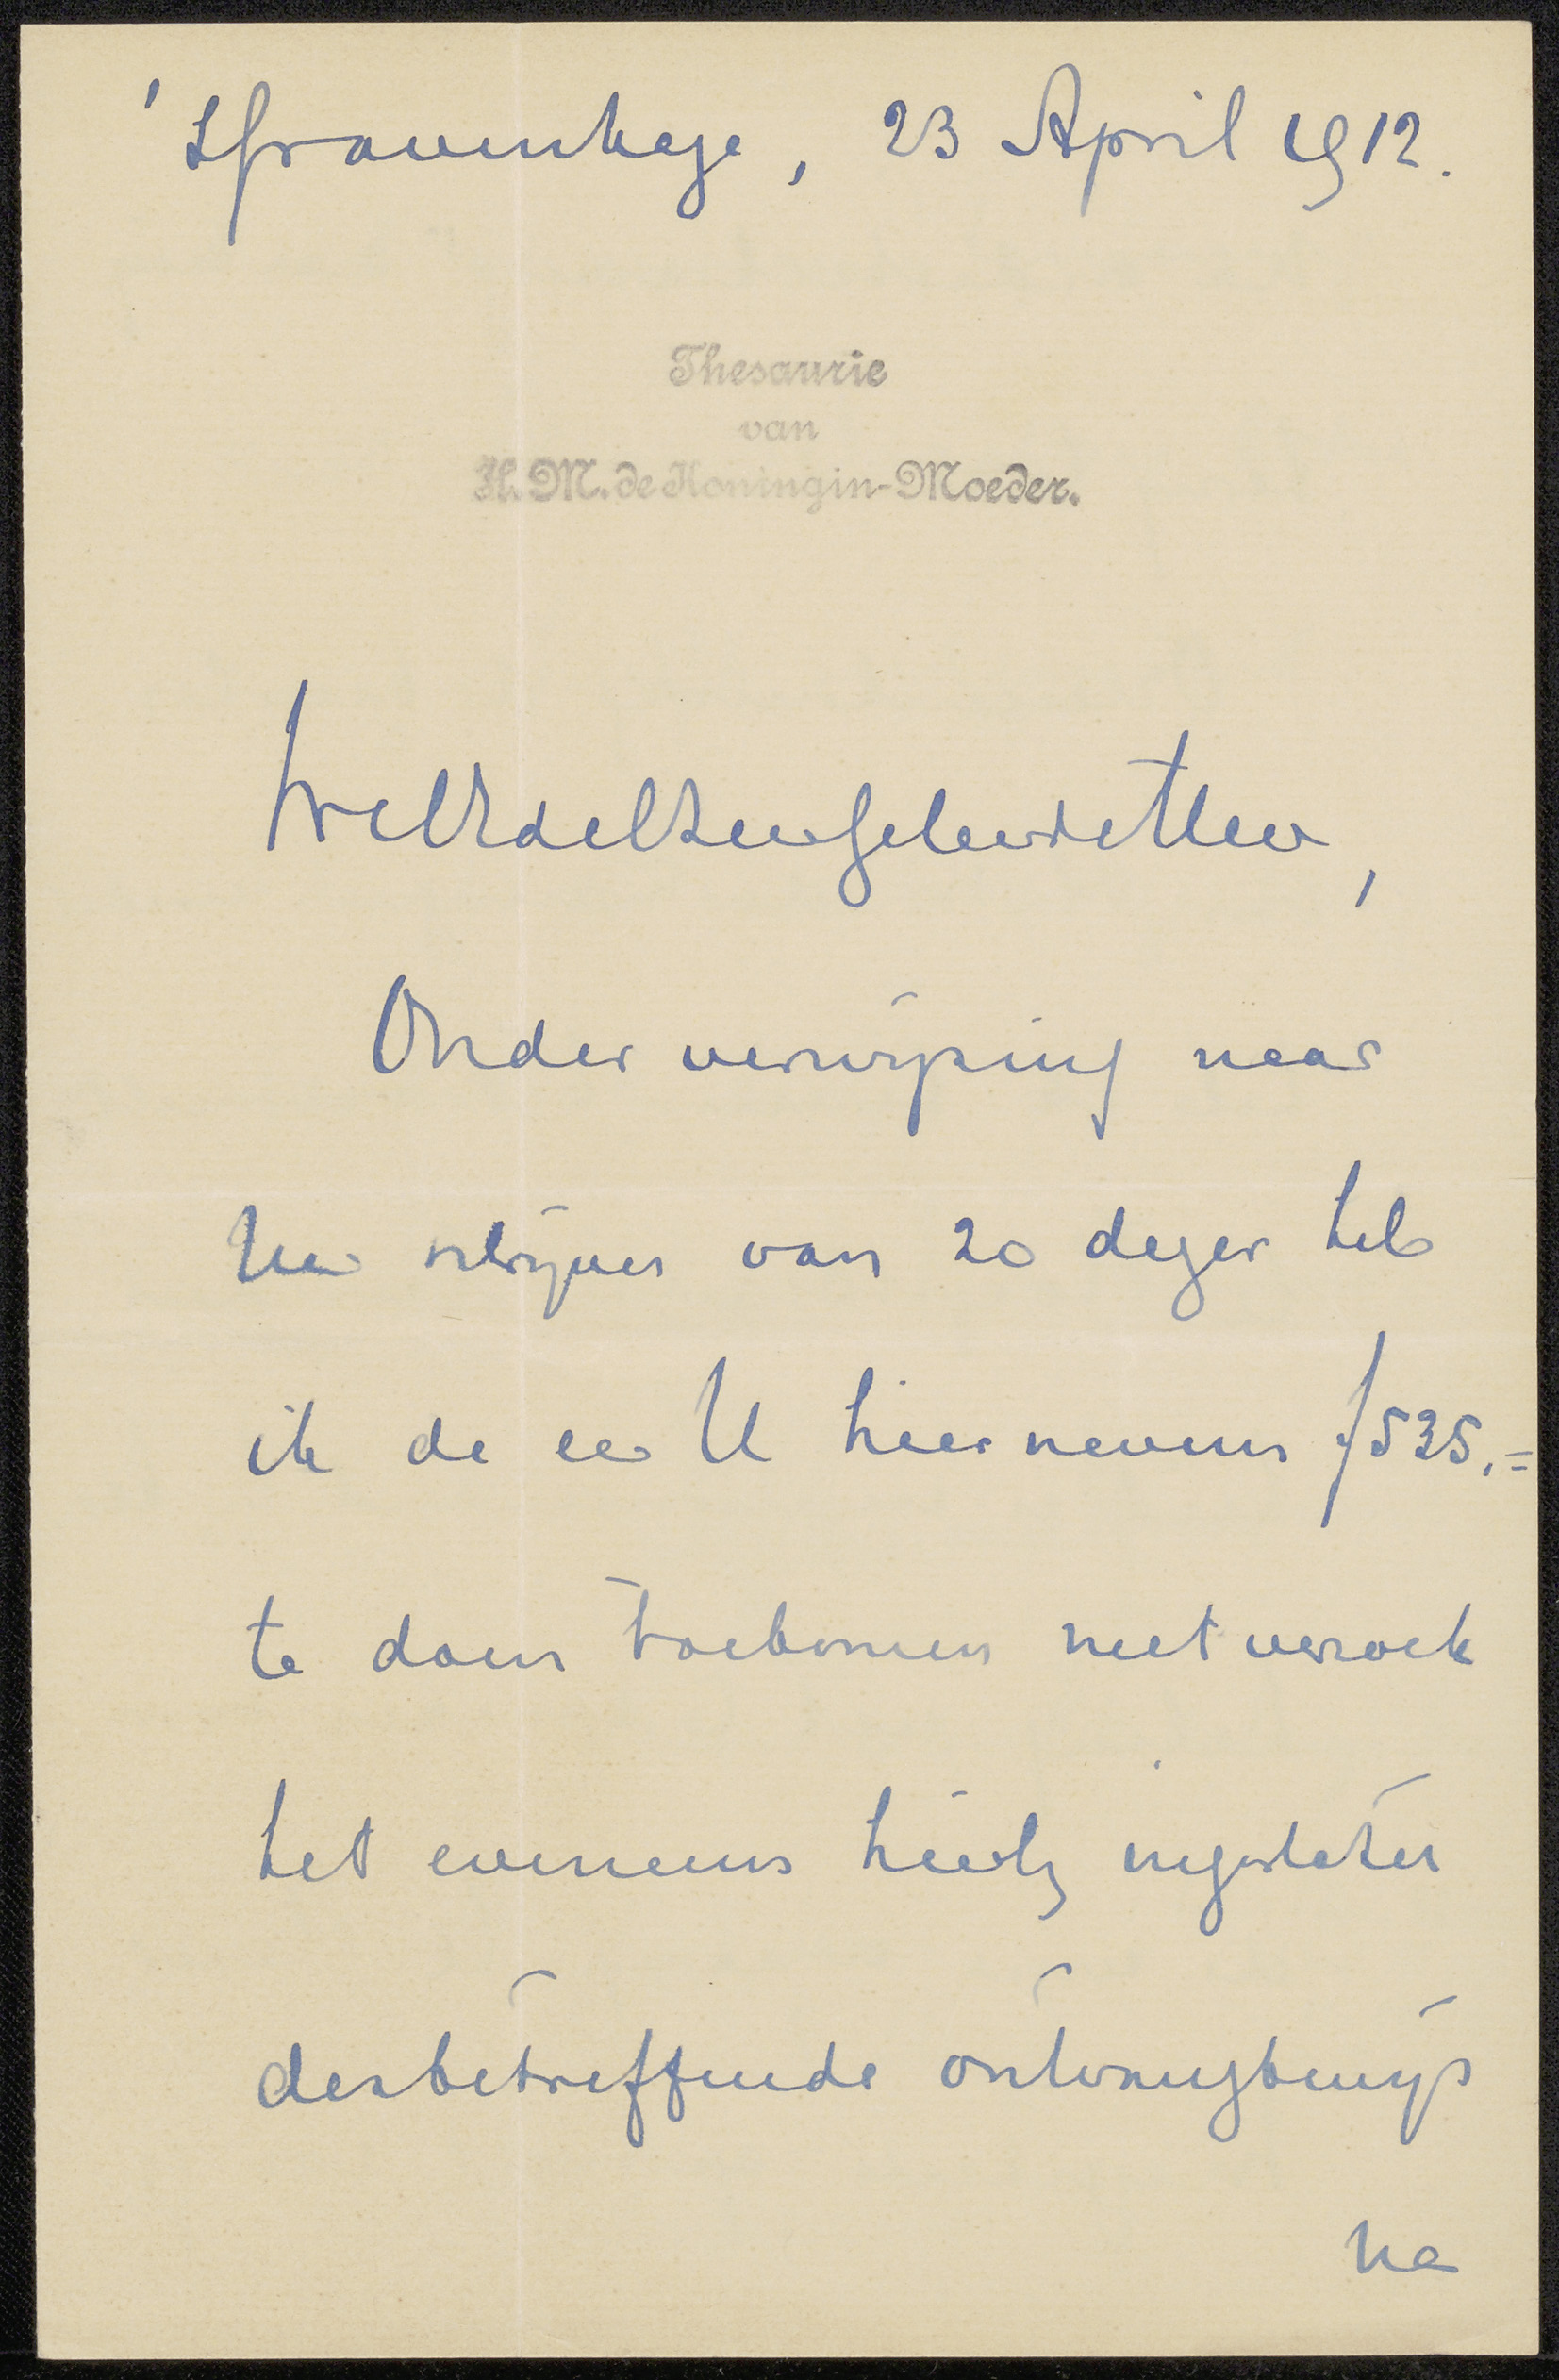 's Gravenhage, 23 April 1912.
Thesaurie
van
H. M. de Koningin-Moeder.
WelEdelZeerGeleerde Heer,
Onder verwijzing naar
Uw schrijven van 20 dezer heb
ik de eer U hiernevens ƒ 535.=
te doen toekomen met verzoek
het eveneens hierbij ingesloten
desbetreffende ontvangbewijs
na